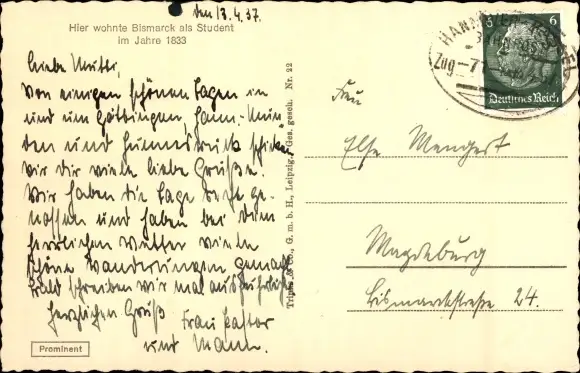 den 13.4.37.
Hier wohnte Bismarck als Student
im Jahre 1833
Liebe Mutti,
Von einigen schönen Tagen in
und um Göttingen, Hann.-Mün-
den und schicken
wir dir viele liebe Grüße.
Wir haben die Tage sehr ge-
nossen und haben bei dem
herrlichen Wetter viele
schöne Wanderungen gemacht.
Bald schreiben wir mal ausführlicher
Herzlichen Gruß
Frau
und Mann.
Prominent
Trinks & Co., G. m. b. H., Leipzig. Ges. gesch. Nr. 22
HANNOVER
Zug
6
Deutsches Reich
Frau
Else Mengert
Magdeburg
Bismarckstraße 24.